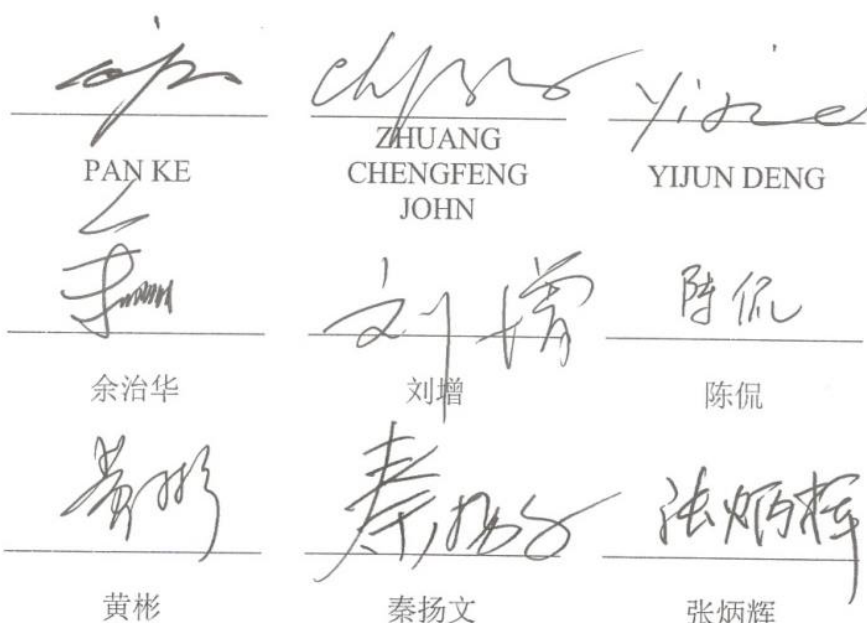 PAN KE
ZHUANG
CHENGFENG
JOHN
YIJUN DENG
刘增
陈侃
余治华
刘增
陈侃
黄彬
秦扬文
张炳辉
黄彬
秦扬文
张炳辉